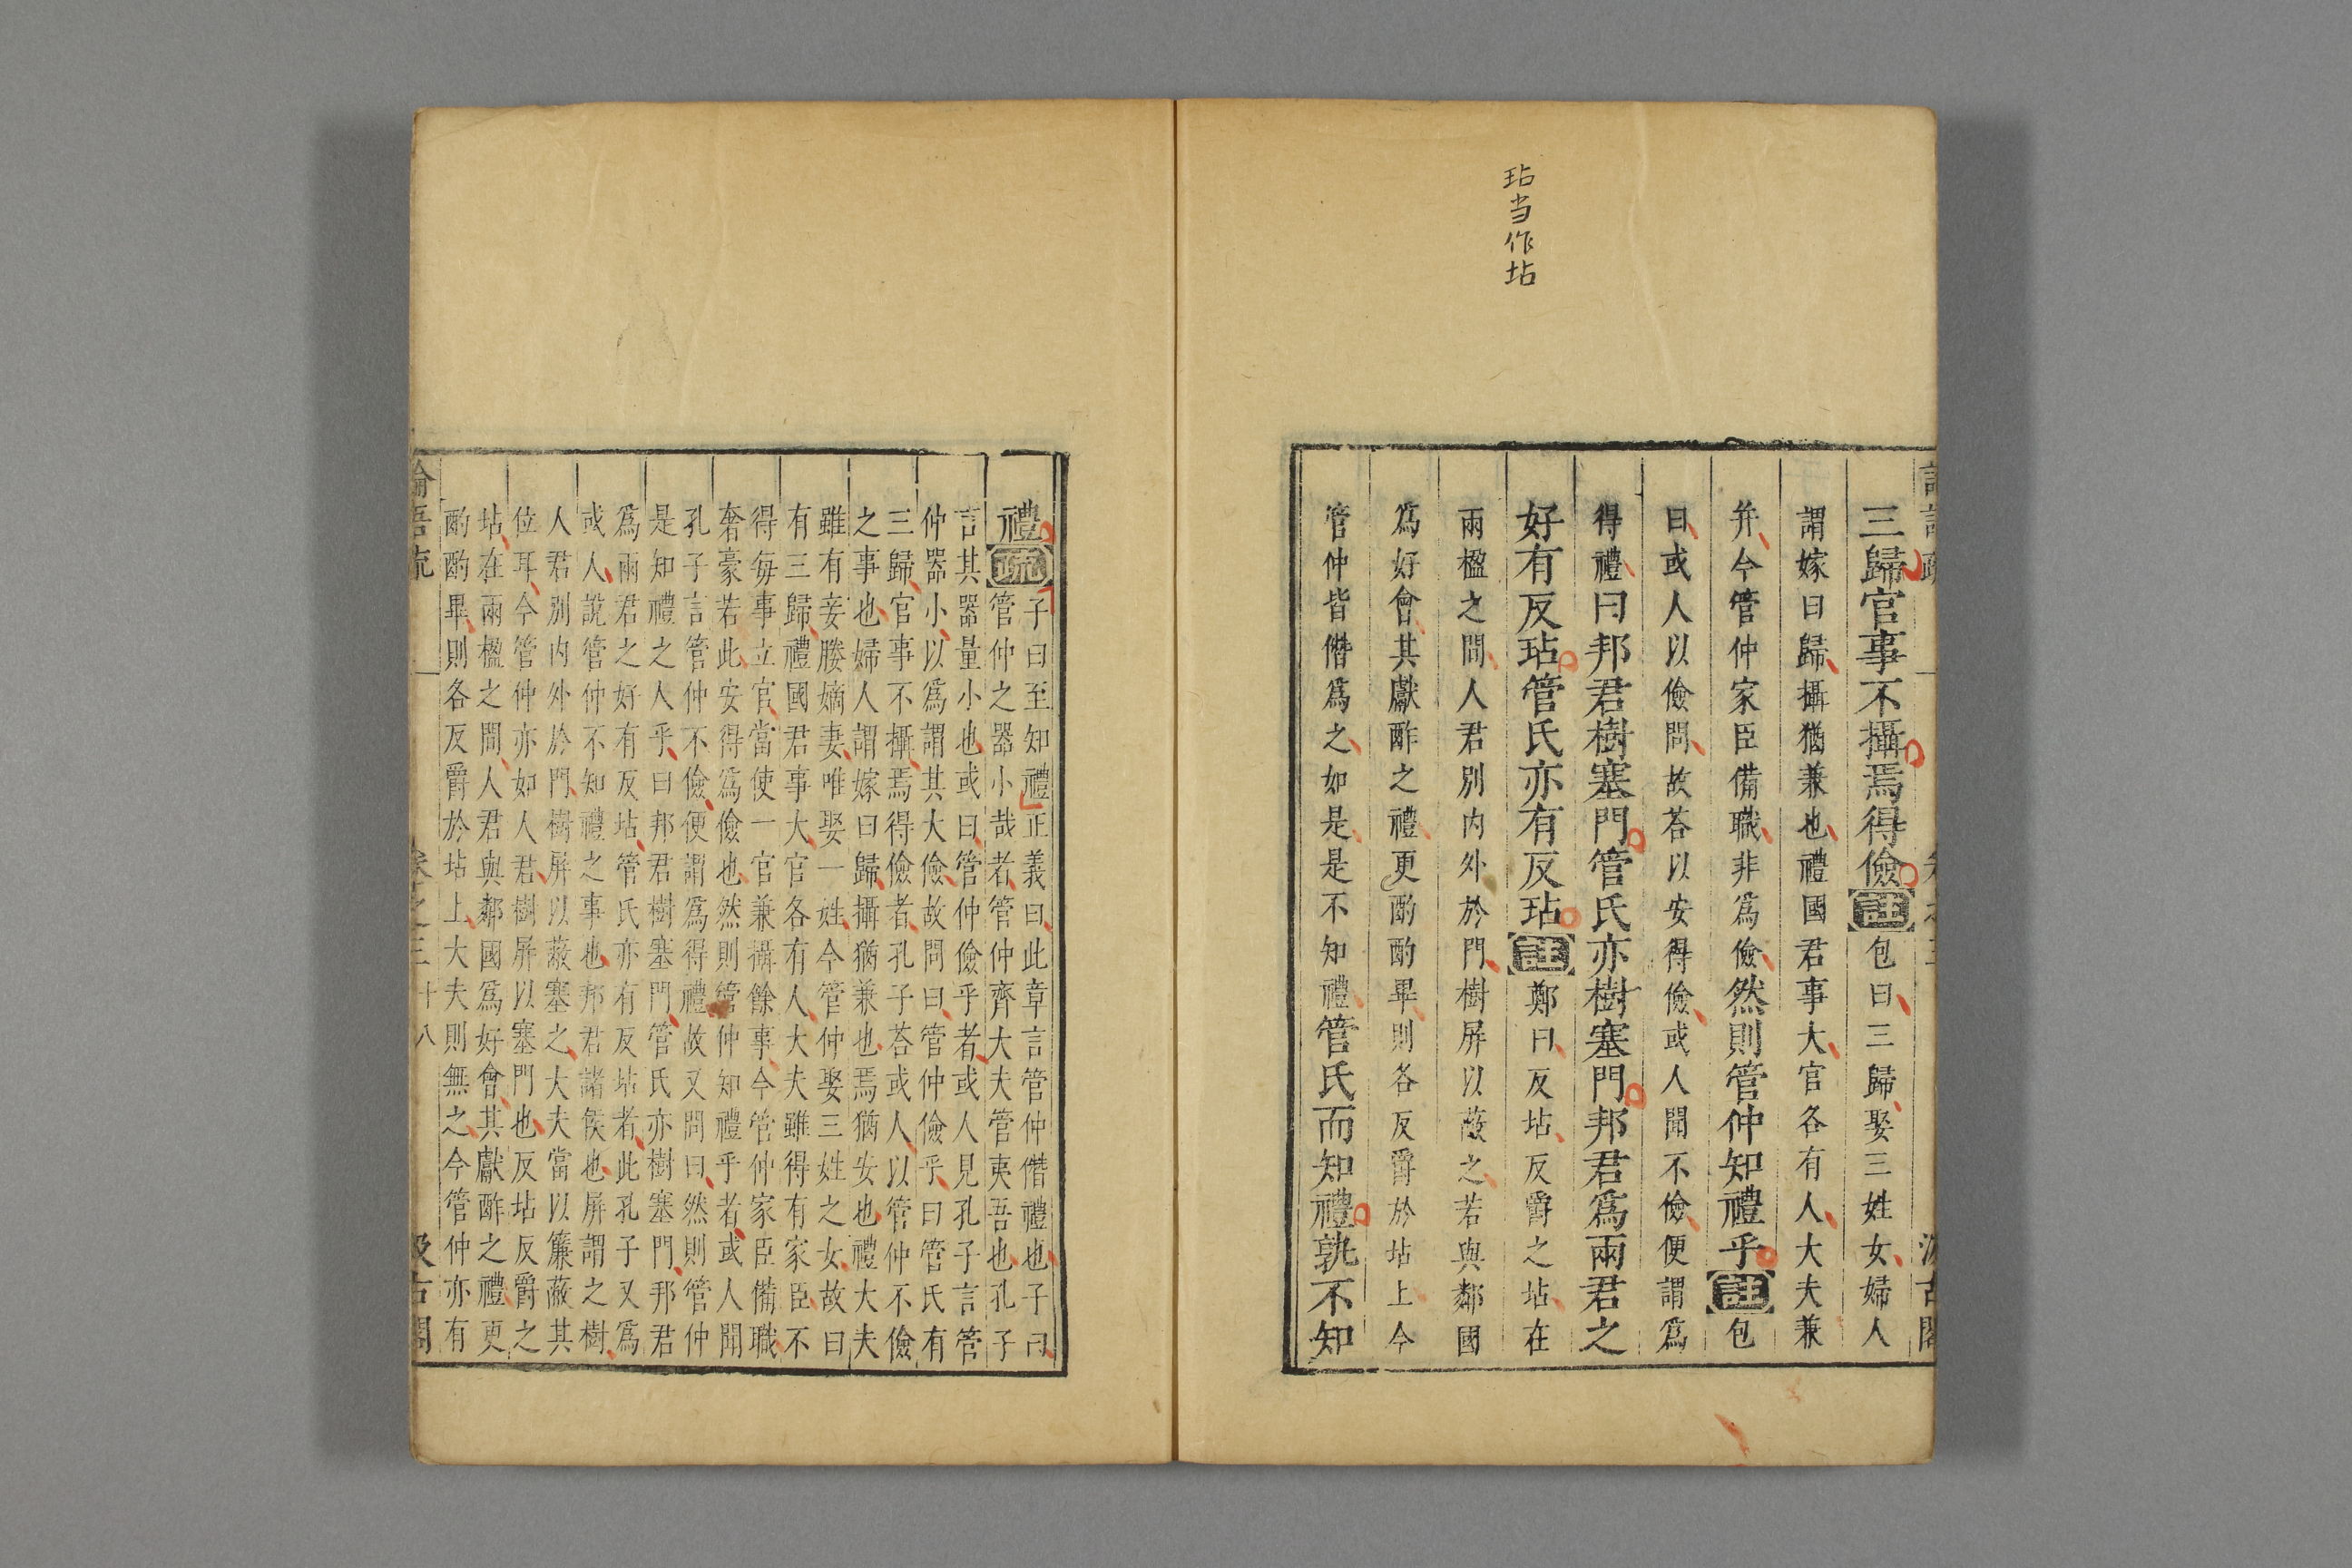 玷当作坫
三歸官事不攝焉得儉註包曰三歸娶三姓女婦人
謂嫁曰歸攝猶兼也禮國君事大官各有人大夫兼
并今管仲家臣備職非爲儉然則管仲知禮乎註包
曰或人以儉問故荅以安得儉或人聞不儉便謂爲
得禮曰邦君樹塞門管氏亦樹塞門邦君爲兩君之
好有反玷管氏亦有反玷註鄭曰反坫反爵之坫在
兩楹之間人君別内外於門樹屏以蔽之若與鄰國
爲好會其獻酢之禮更酌酌畢則各反爵於坫上今
管仲皆僭爲之如是是不知禮管氏而知禮孰不知
禮疏
子曰至知禮正義曰此章言管仲僭禮也子曰
管仲之器小哉者管仲齊大夫管夷吾也孔子
言其器量小也或曰管仲儉乎者或人見孔子言管
仲器小以爲謂其大儉故問曰管仲儉乎曰管氏有
三歸官事不攝焉得儉者孔子荅或人以管仲不儉
之事也婦人謂嫁曰歸攝猶兼也焉猶安也禮大夫
雖有妾媵嫡妻唯娶一姓今管仲娶三姓之女故曰
有三歸禮國君事大官各有人大夫雖得有家臣不
得每事立官當使一官兼攝餘事今管仲家臣備職
奢豪若此安得爲儉也然則管仲知禮乎者或人聞
孔子言管仲不儉便謂爲得禮故又問曰然則管仲
是知禮之人乎曰邦君樹塞門管氏亦樹塞門邦君
爲兩君之好有反坫管氏亦有反坫者此孔子又爲
或人說管仲不知禮之事也邦君諸侯也屏謂之樹
人君別内外於門樹屏以蔽塞之大夫當以簾蔽其
位耳今管仲亦如人君樹屏以塞門也反坫反爵之
坫在兩楹之間人君與鄰國爲好會其獻酢之禮更
酌酌畢則各反爵於坫上大夫則無之今管仲亦有
論語疏 卷之三 十八 汲古閣